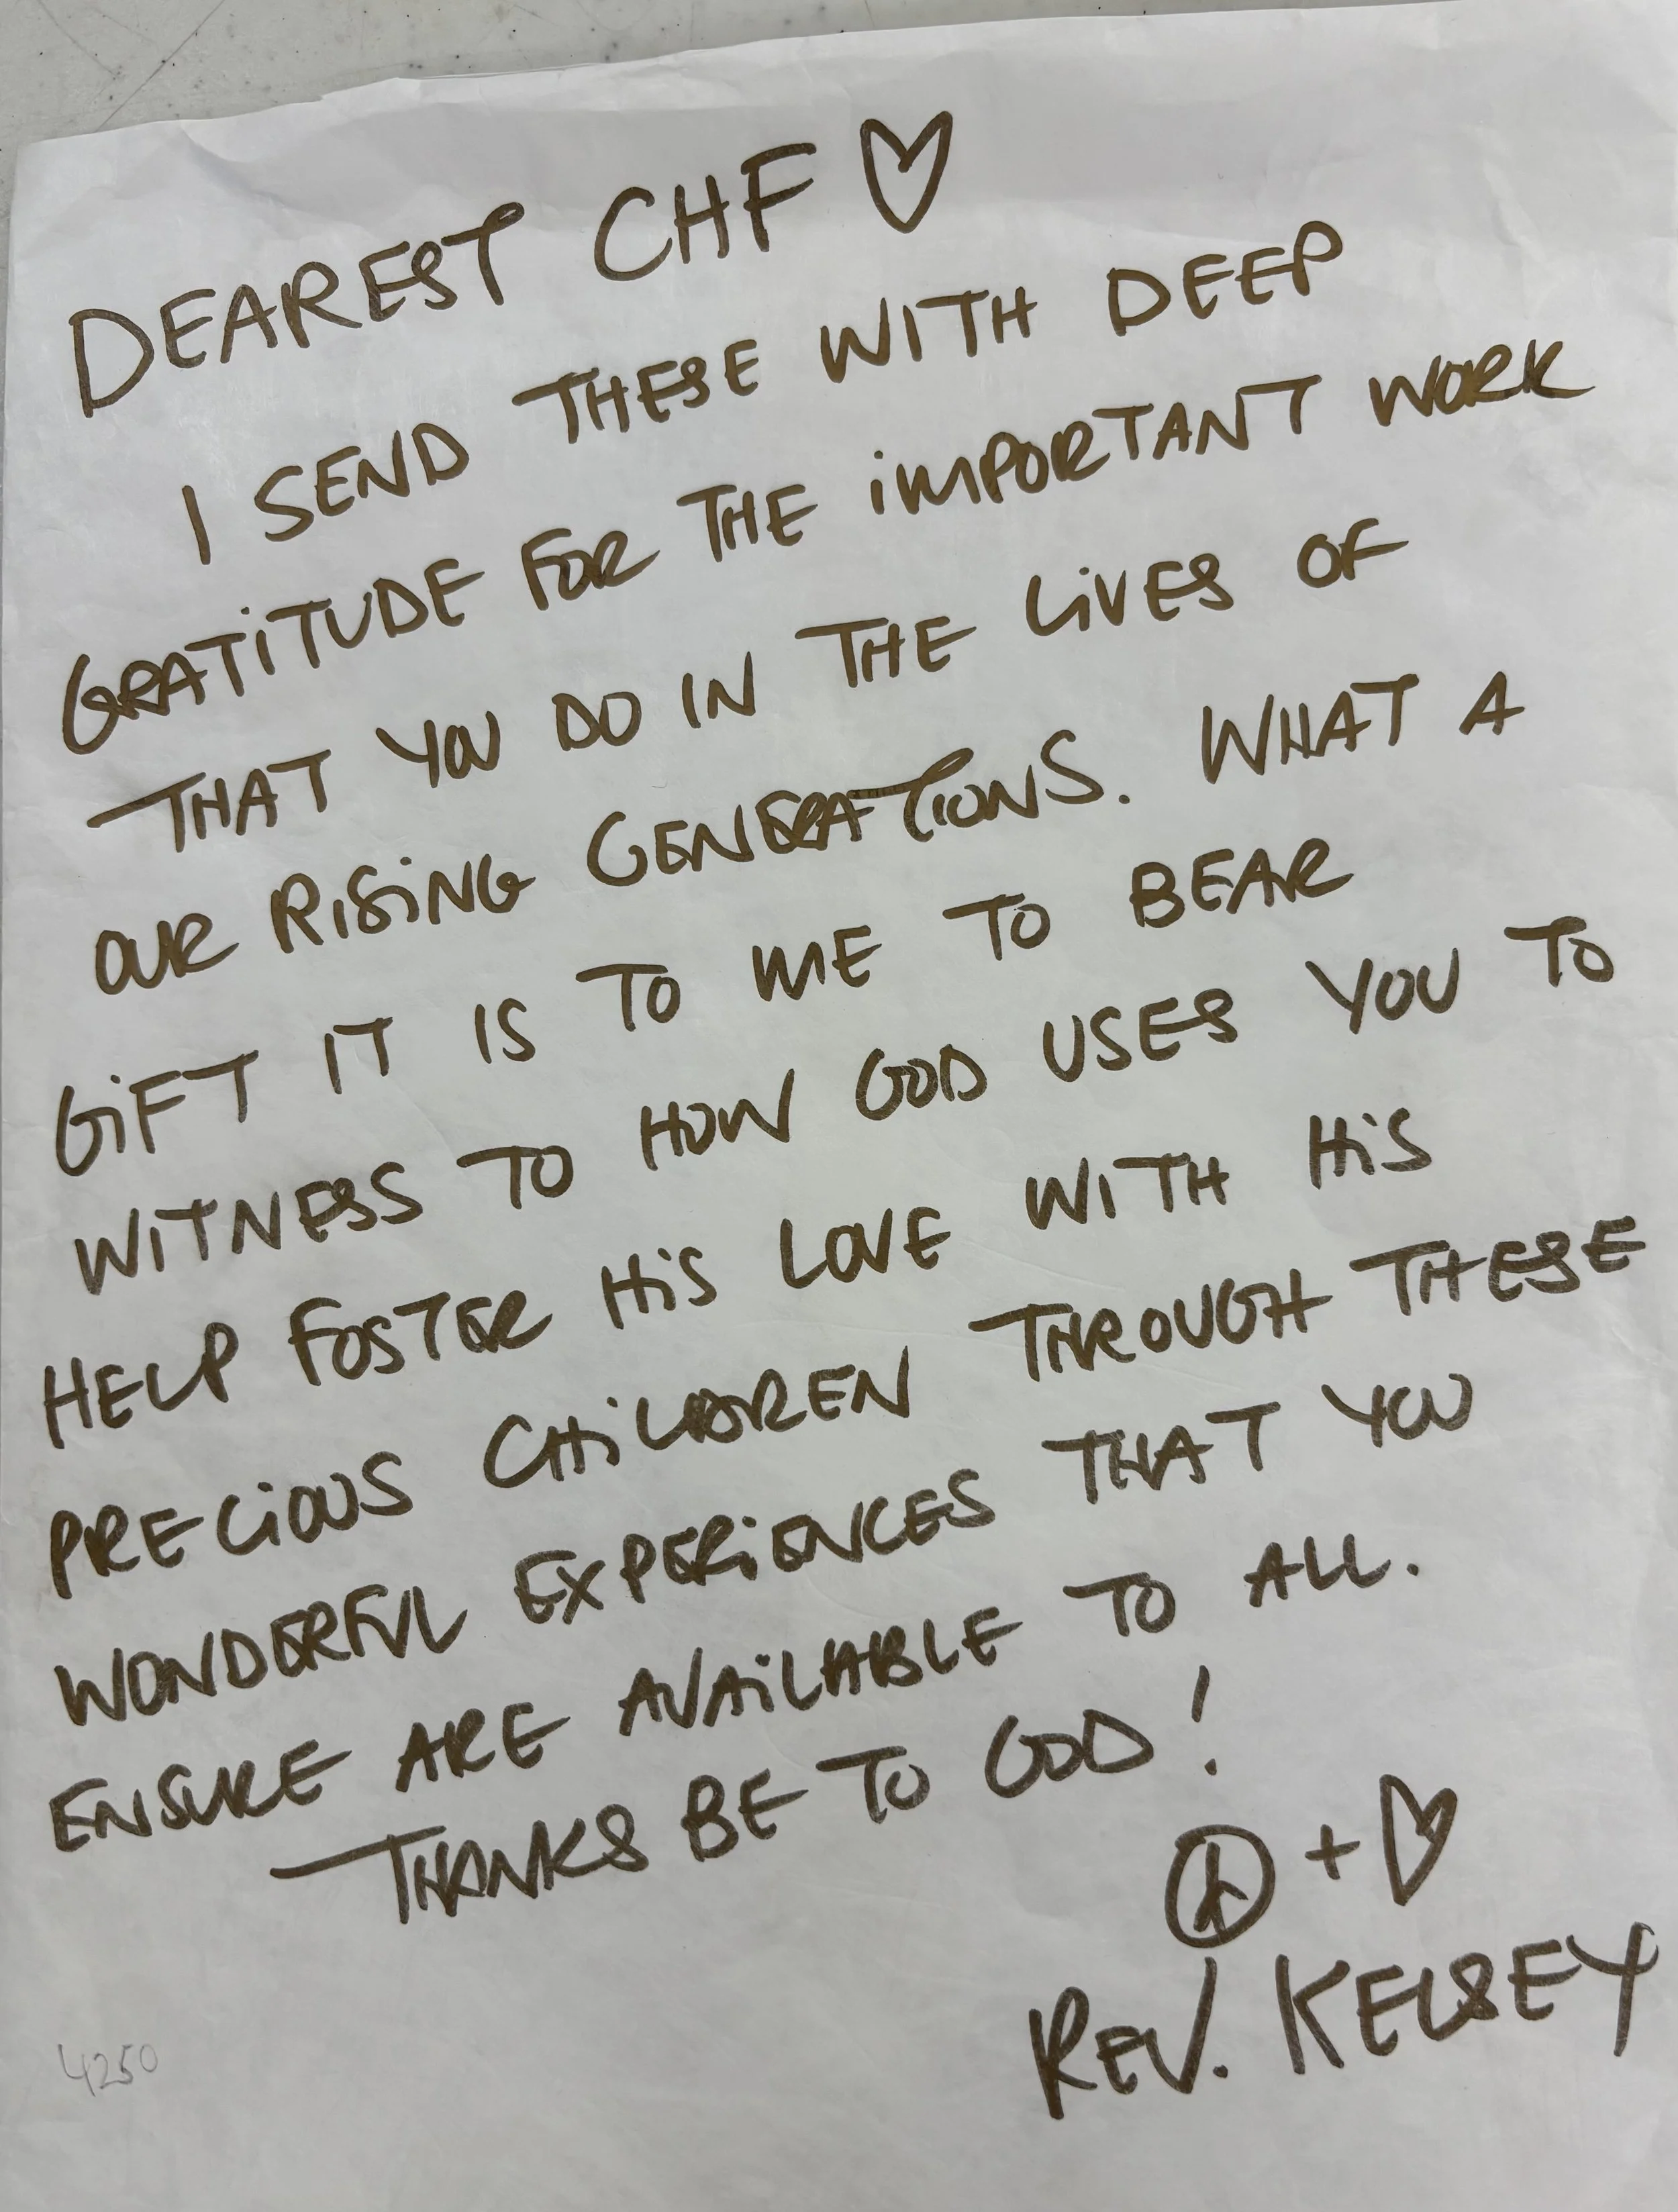 DEAREST CHF ♡
I SEND THESE WITH DEEP
GRATITUDE FOR THE IMPORTANT WORK
THAT YOU DO IN THE LIVES OF
OUR RISING GENERATIONS. WHAT A
GIFT IT IS TO ME TO BEAR
WITNESS TO HOW GOD USES YOU TO
HELP FOSTER HIS LOVE WITH HIS
PRECIOUS CHILDREN THROUGH THESE
WONDERFUL EXPERIENCES THAT YOU
ENSURE ARE AVAILABLE TO ALL.
THANKS BE TO GOD!
☮ + ♡
REV. KELSEY
4250